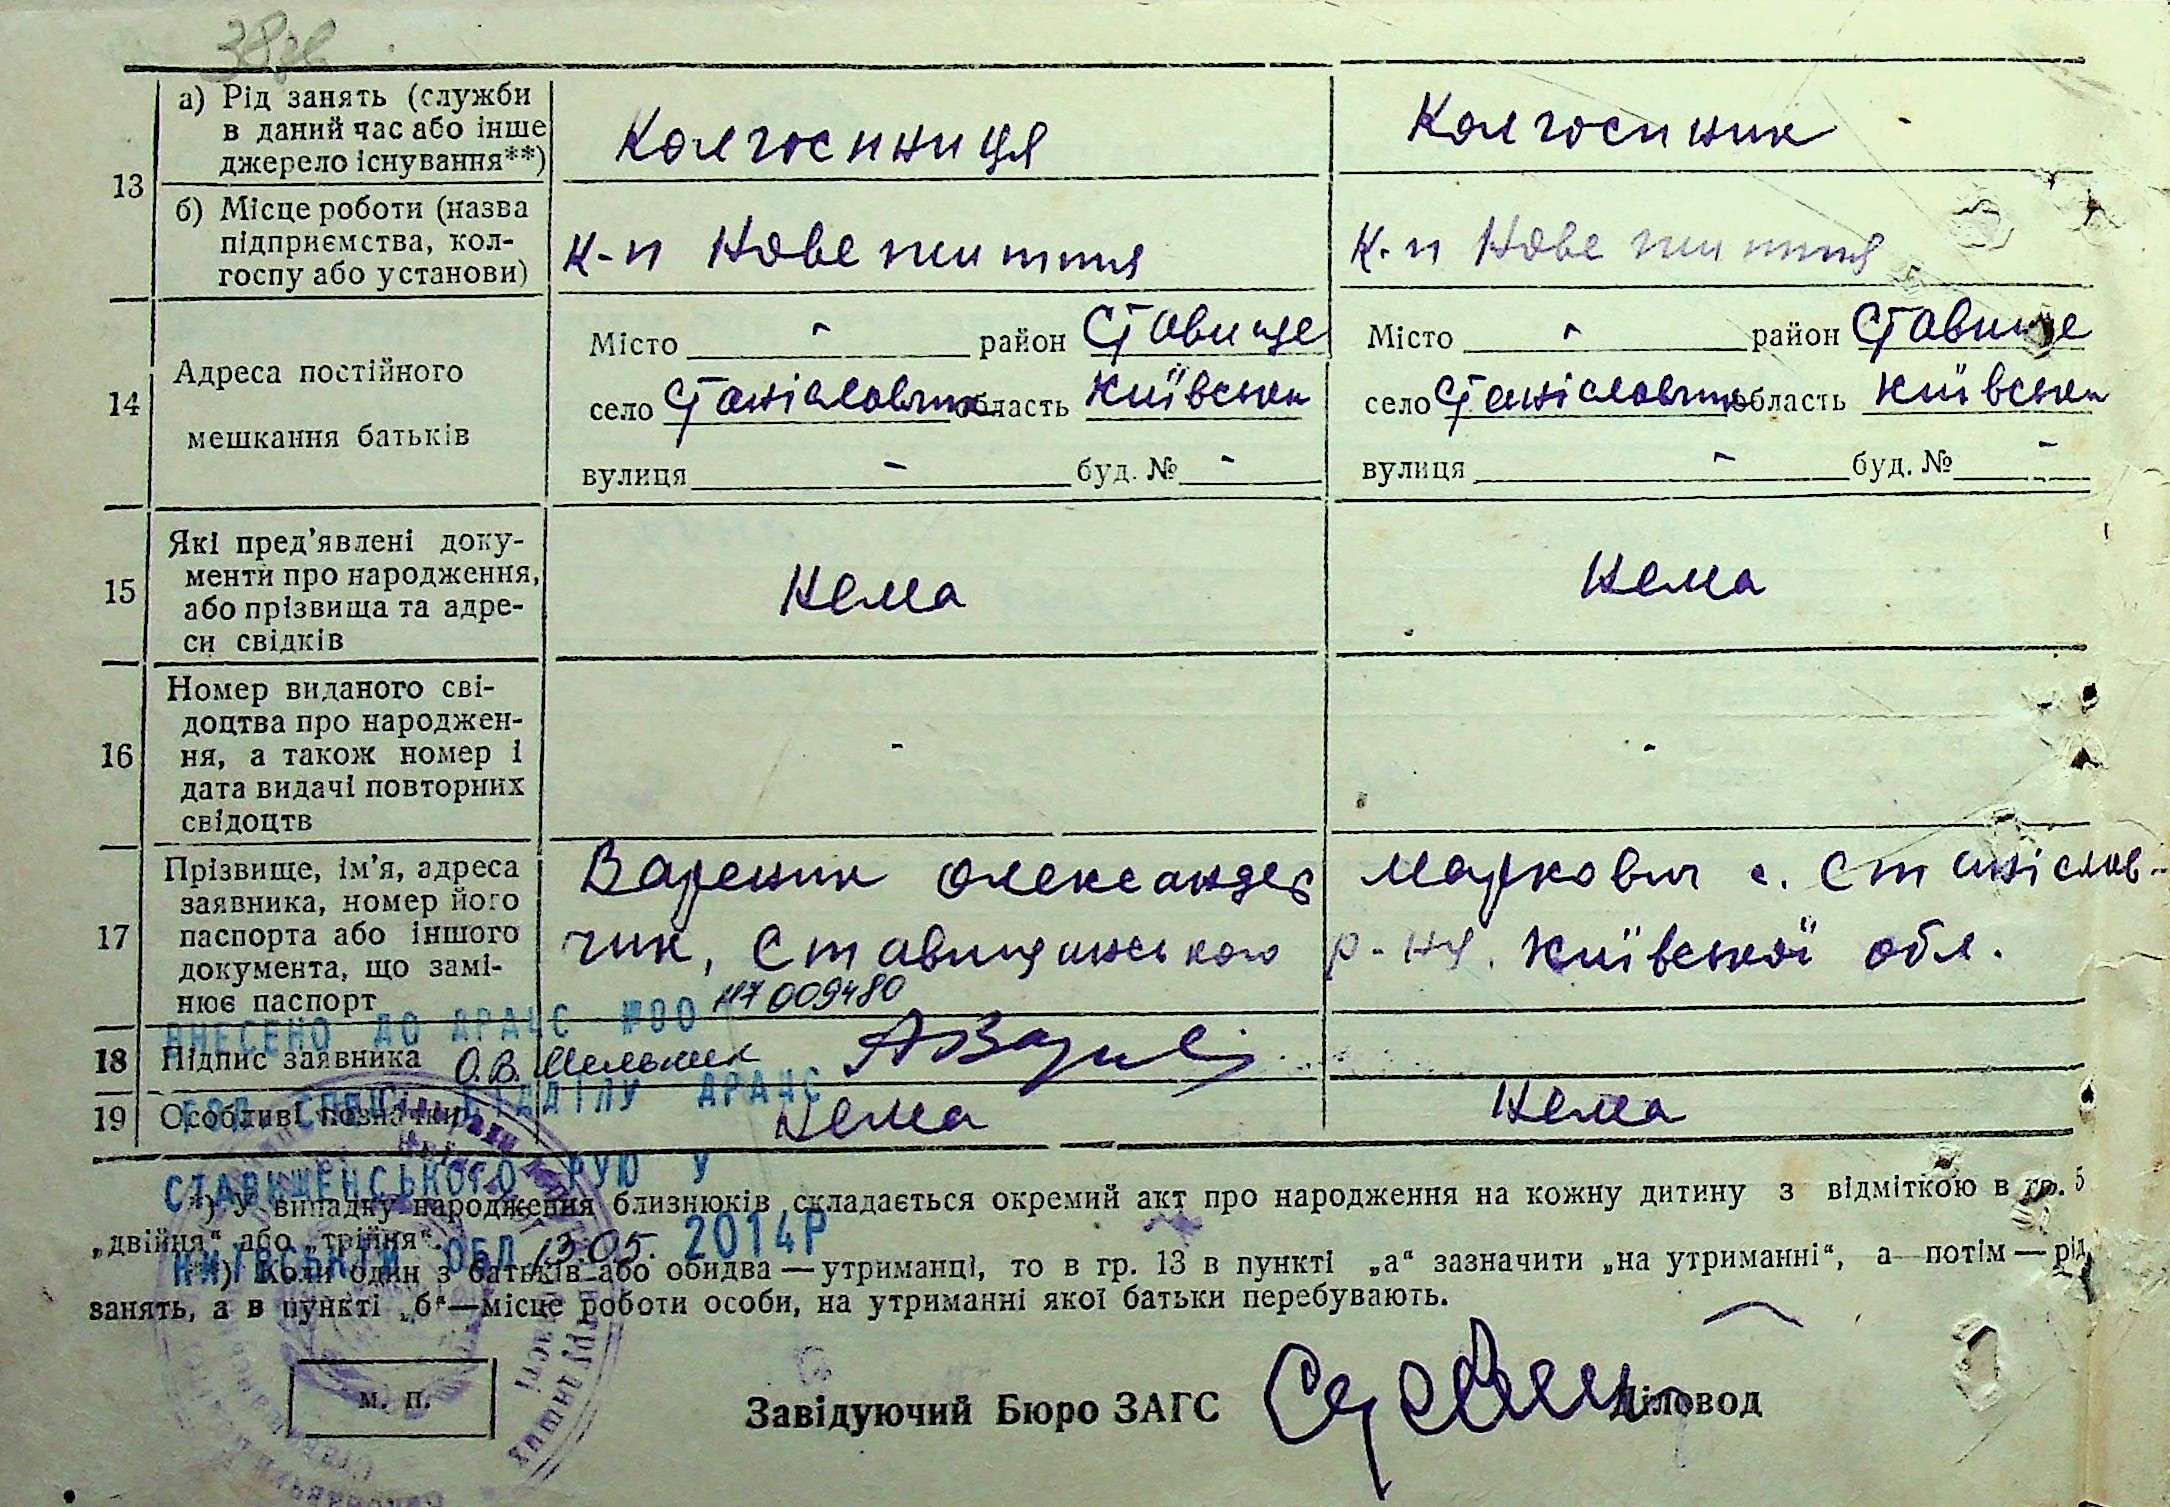 а) Рід занять (служби
в даний час або інше
джерело існування**)
Колгоспниця
Колгоспник
13
б) Місце роботи (назва
підприємства, кол-
госпу або установи)
к-п Нове життя
к-п Нове життя
14
Адреса постійного
мешкання батьків
Місто - район Ставище
село Станіславчик область Київська
вулиця - буд. № -
Місто - район Ставище
село Станіславчик область Київська
вулиця - буд. № -
15
Які пред'явлені доку-
менти про народження,
або прізвища та адре-
си свідків
Нема
Нема
16
Номер виданого сві-
доцтва про народжен-
ня, а також номер і
дата видачі повторних
свідоцтв
-
-
17
Прізвище, ім'я, адреса
заявника, номер його
паспорта або іншого
документа, що замі-
нює паспорт
Вареник Олександер Маркович с. Станіслав-
чик, Ставищинського р-ну. Київської обл.
ВНЕСЕНО ДО ДРАЦС №00 117 009480
18 Підпис заявника О.В. Мельник
19 Особливі позначки
Нема
Нема
ВІДДІЛУ ДРАЦС
СТАВИЩЕНСЬКОГО РУЮ У
КИЇВСЬКІЙ ОБЛ. 13.05. 2014Р
*) У випадку народження близнюків складається окремий акт про народження на кожну дитину з відміткою в гр. 5
„двійня“ або „трійня“.
**) Коли один з батьків або обидва — утриманці, то в гр. 13 в пункті „а“ зазначити „на утриманні“, а потім — рід
занять, а в пункті „б“—місце роботи особи, на утриманні якої батьки перебувають.
м. п.
Завідуючий Бюро ЗАГС
Діловод